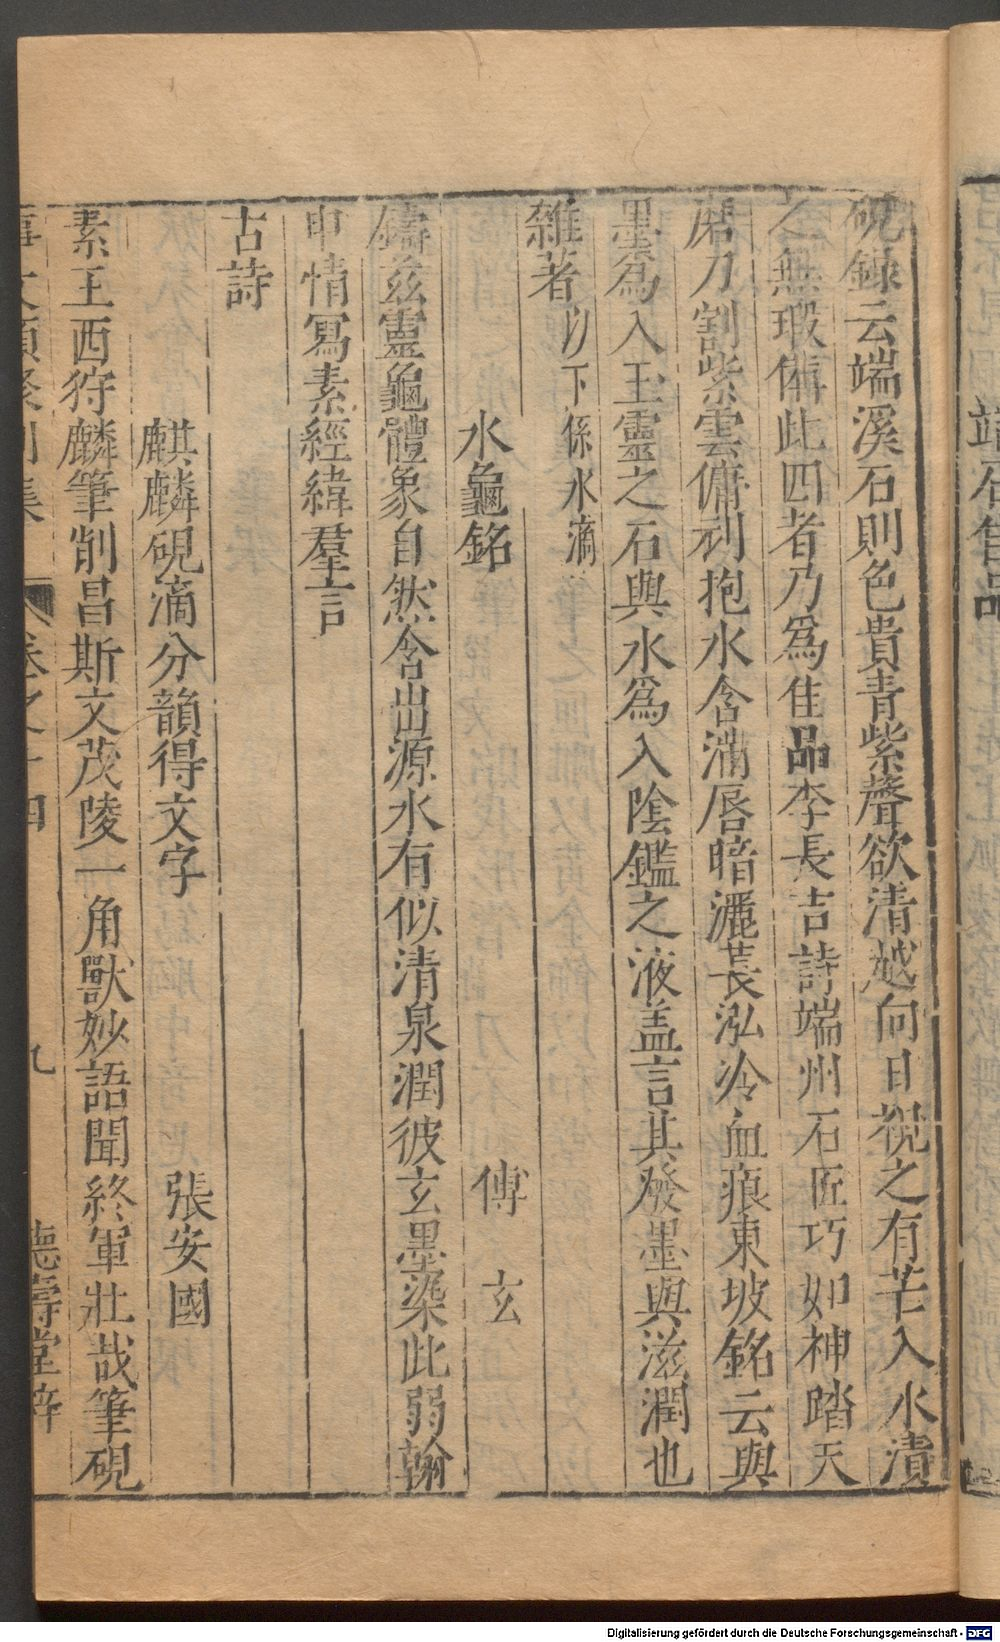 硯錄云端溪石則色貴青紫聲欲清越向日視之有芒入水漬
之無瑕備此四者乃爲佳品李長吉詩端州石匠巧如神踏天
磨刀割紫雲傭刓抱水含滿唇暗灑萇泓冷血痕東坡銘云與
墨爲入玉靈之石與水爲入陰鑑之液盖言其發墨與滋潤也
雜著以下係水滴
水龜銘 傅玄
鑄茲靈龜體象自然含出源水有似清泉潤彼玄墨染此弱翰
申情寫素經緯羣言
古詩
麒麟硯滴分韻得文字 張安國
素王西狩麟筆削昌斯文茂陵一角獸妙語聞終軍壯哉筆硯
事文類聚別集 卷之十四 九 德壽堂梓
端石售
Digitalisierung gefördert durch die Deutsche Forschungsgemeinschaft - DFG